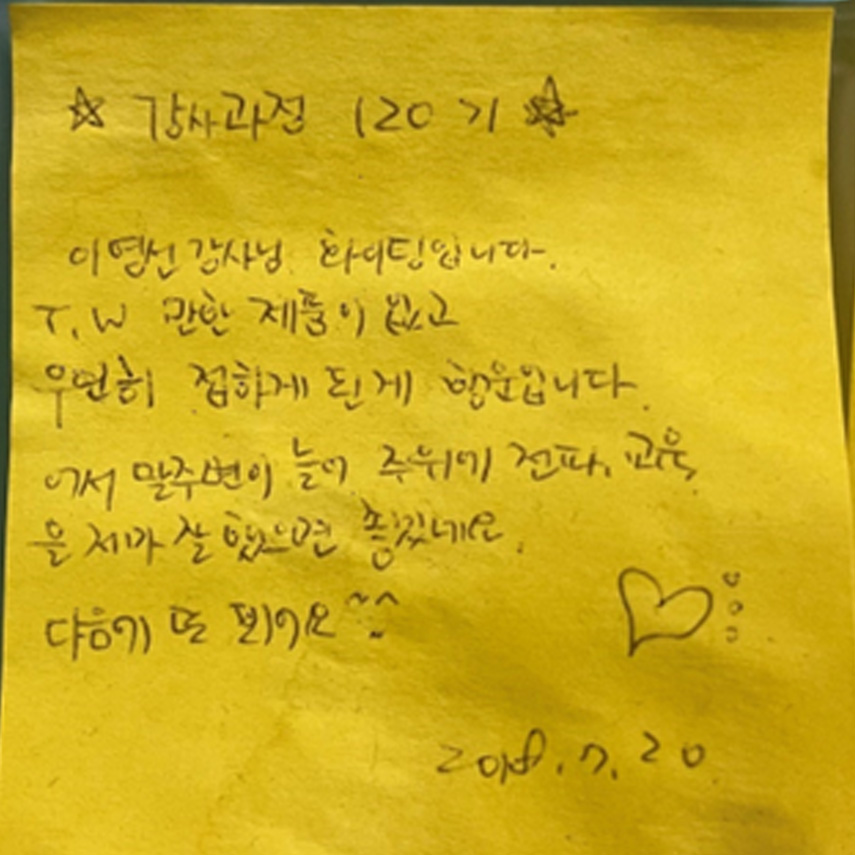 ☆ 강사과정 120기 ☆
이영선 강사님 화이팅입니다.
T.W 만한 제품이 없고
우연히 접하게 된 게 행운입니다.
어서 말주변이 늘어 주위에 전파, 교육
을 제가 잘 했으면 좋겠네요.
다음에 또 뵈어요 ^^
2018.7.20